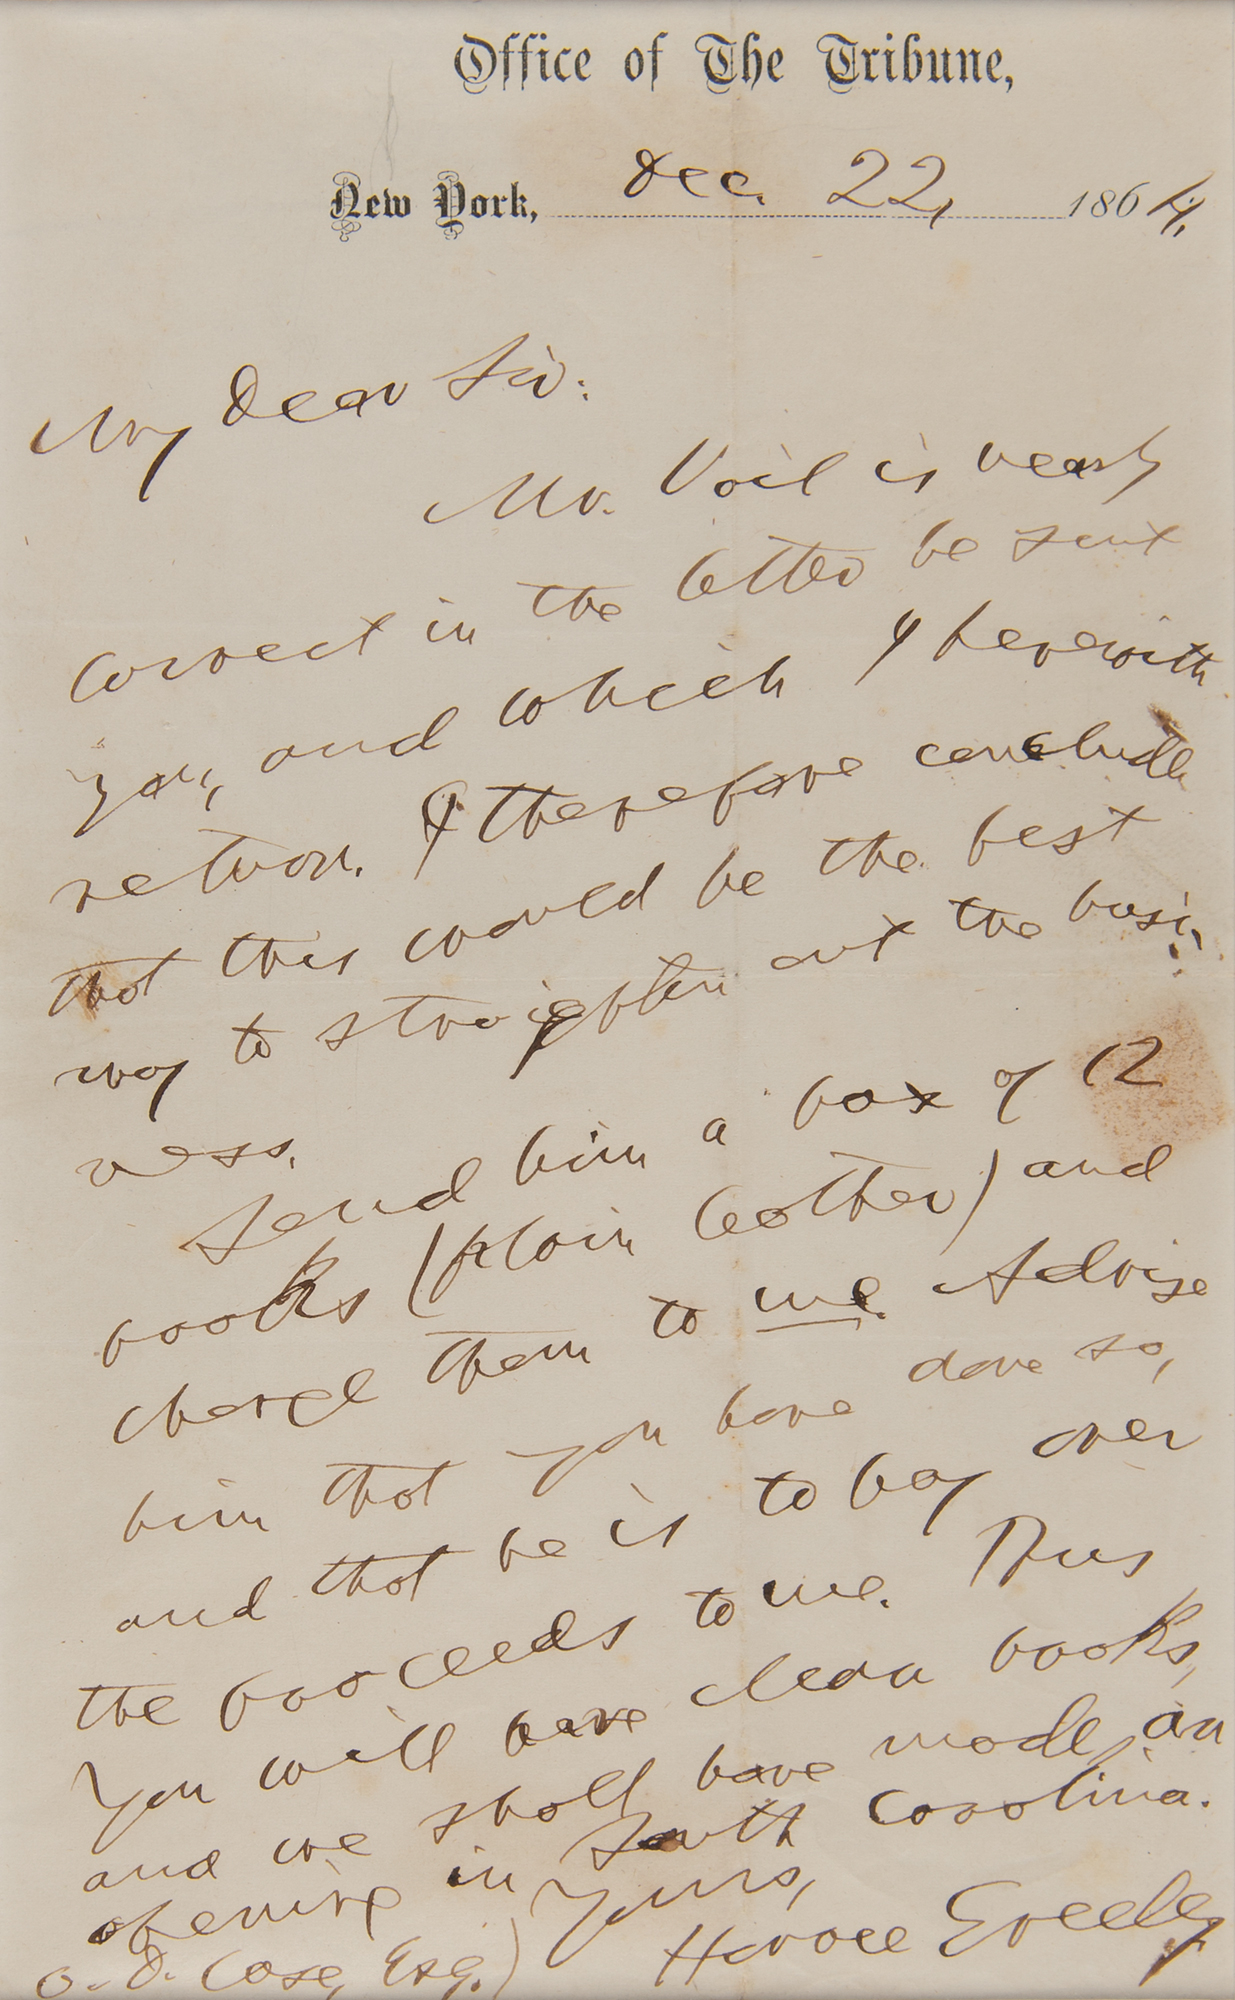 Office of The Tribune,
New York, Dec. 22, 1864.
My Dear Sir:
Mr. Vail is nearly
correct in the letter he sent
you, and which I herewith
return. I therefore conclude
that this would be the best
way to straighten out the busi-
ness.
Send him a box of 12
books (plain leather) and
charge them to me. Advise
him that you have done so,
and that he is to pay over
the proceeds to me. Thus
you will have clean books,
and we shall have made an
opening in South Carolina.
Yours,
Horace Greeley
O. D. Case, Esq.)